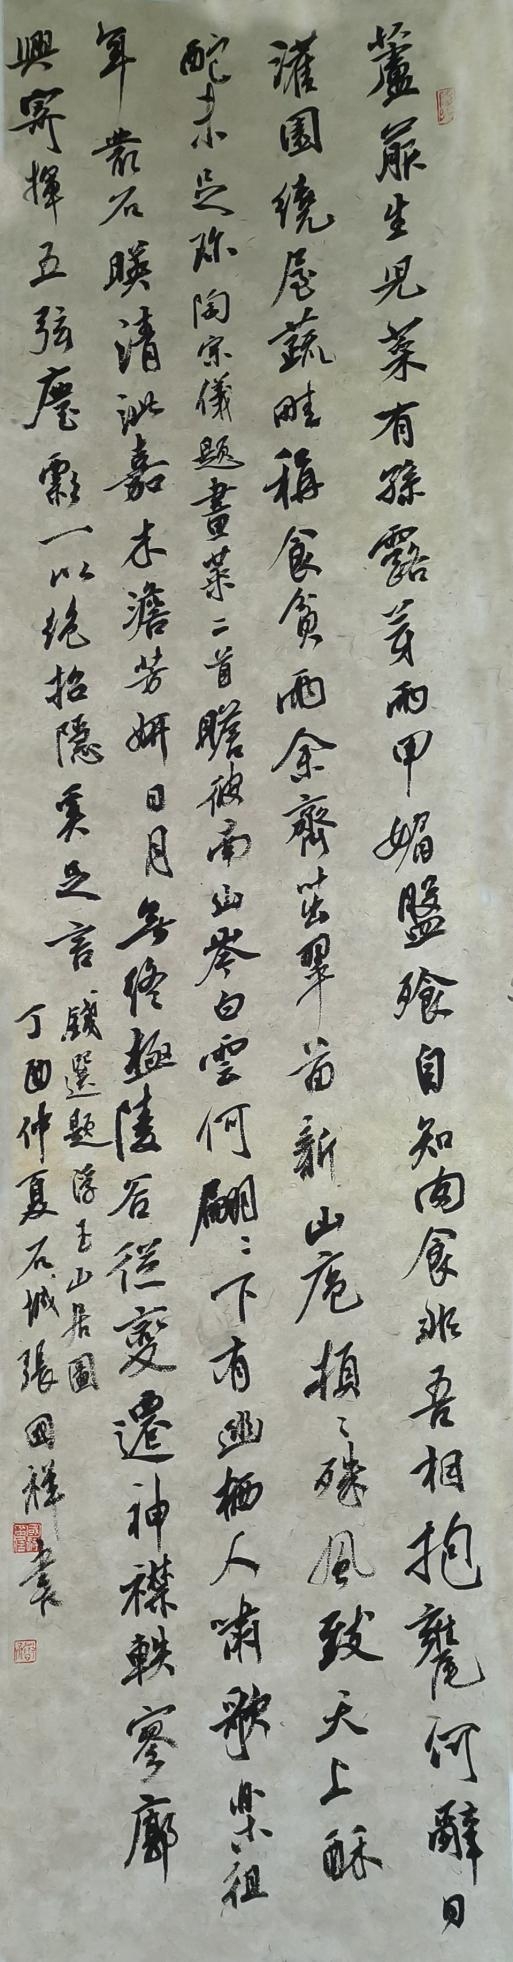 蘆菔生兒菜有孫露芽雨甲媚盤飱自知肉食非吾相抱甕何辭日
灌園繞屋蔬畦稱食貧雨余齊茁翠苗新山庖頓頓殊風致天上酥
酡未足珎陶宗儀題畫菜二首瞻彼南山岑白雲何翩翩下有幽栖人嘯歌樂徂
年叢石映清泚嘉木澹芳妍日月無終極陵谷從變遷神襟軼寥廓
興寄揮五弦塵影一以絶招隱奚足言
錢選題浮玉山居圖
丁酉仲夏石城張國祥書